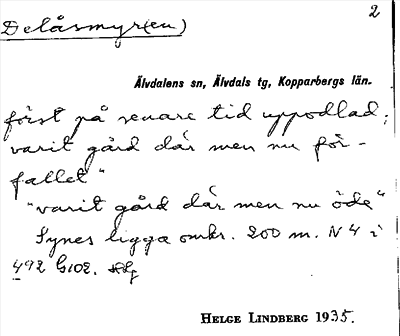 2
Delåsmyr(en)
Älvdalens sn, Älvdals tg, Kopparbergs län.
först på senare tid uppodlad;
varit gård där men nu för-
fallet"
"varit gård där men nu öde"
Synes ligga omkr. 200 m. N 4 i
492 G102.
HELGE LINDBERG 1935.